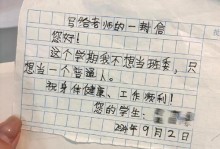 写给老师的一封信
您好！
这个学期我不想当班委，只
想当一个普通人。
祝身体健康、工作顺利！
您的学生：
2024年9月2日